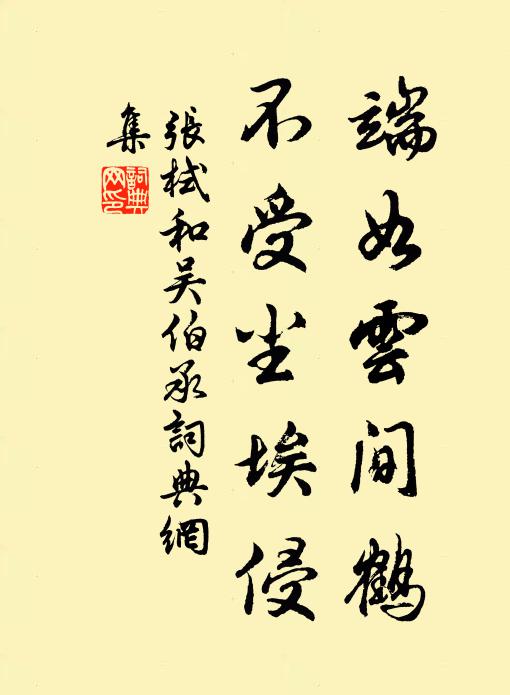 端如雲间鶴
不受尘埃侵
張栻和吴伯承詞典網
集
詞典網印